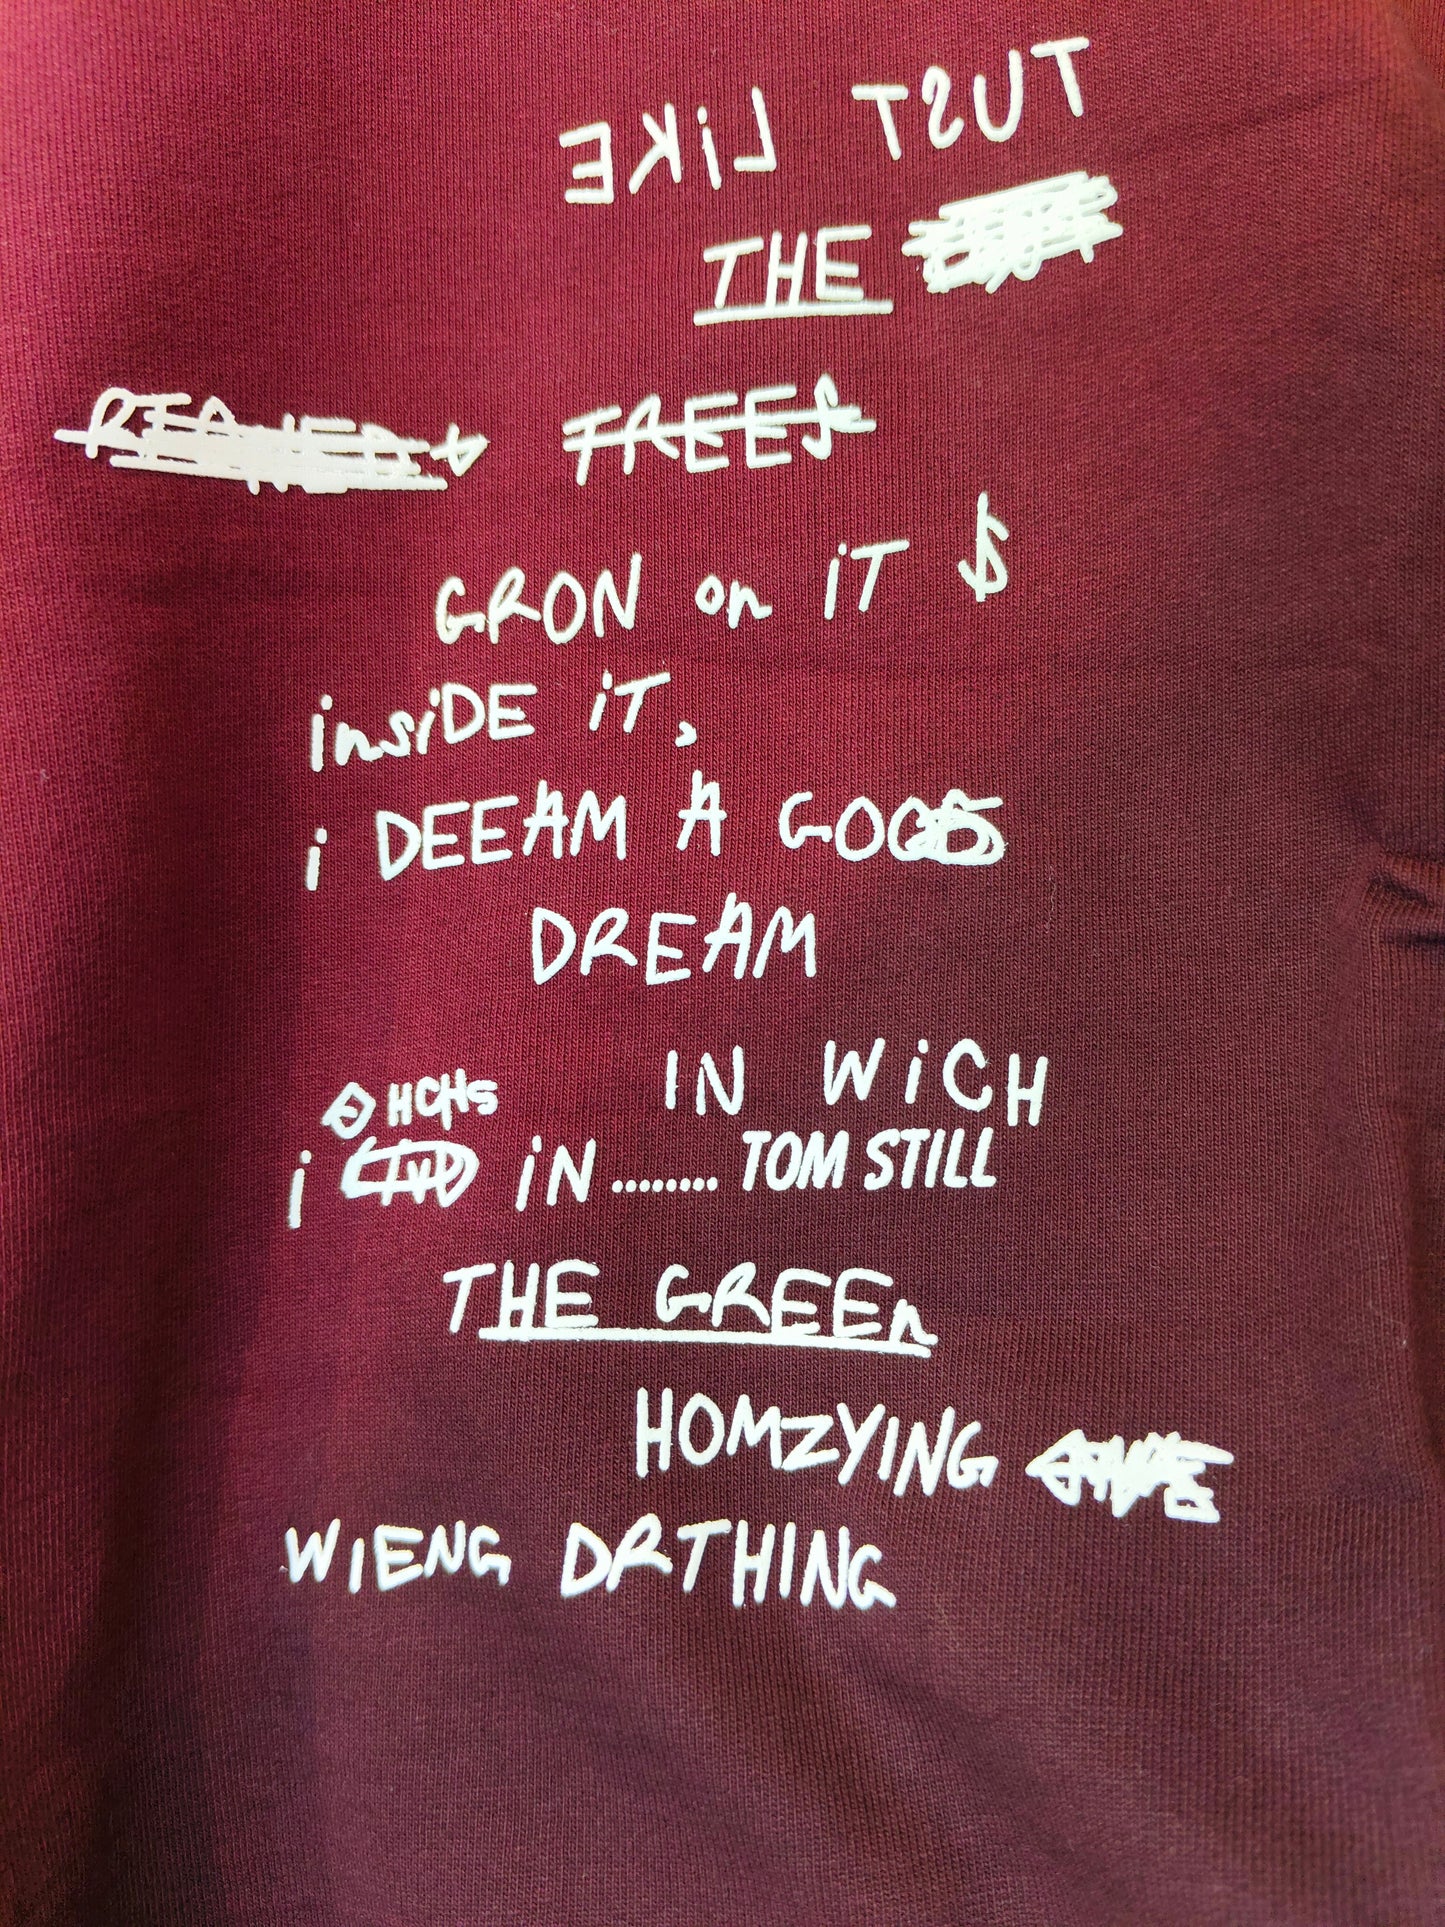 TUST LiKE
THE
TREES
GRON on iT $
insiDE iT,
i DEEAM A GOOD
DREAM
IN WiCH
HCHS
i iN ........ TOM STILL
THE GREEn
HOMZYING
WIENG DRTHING